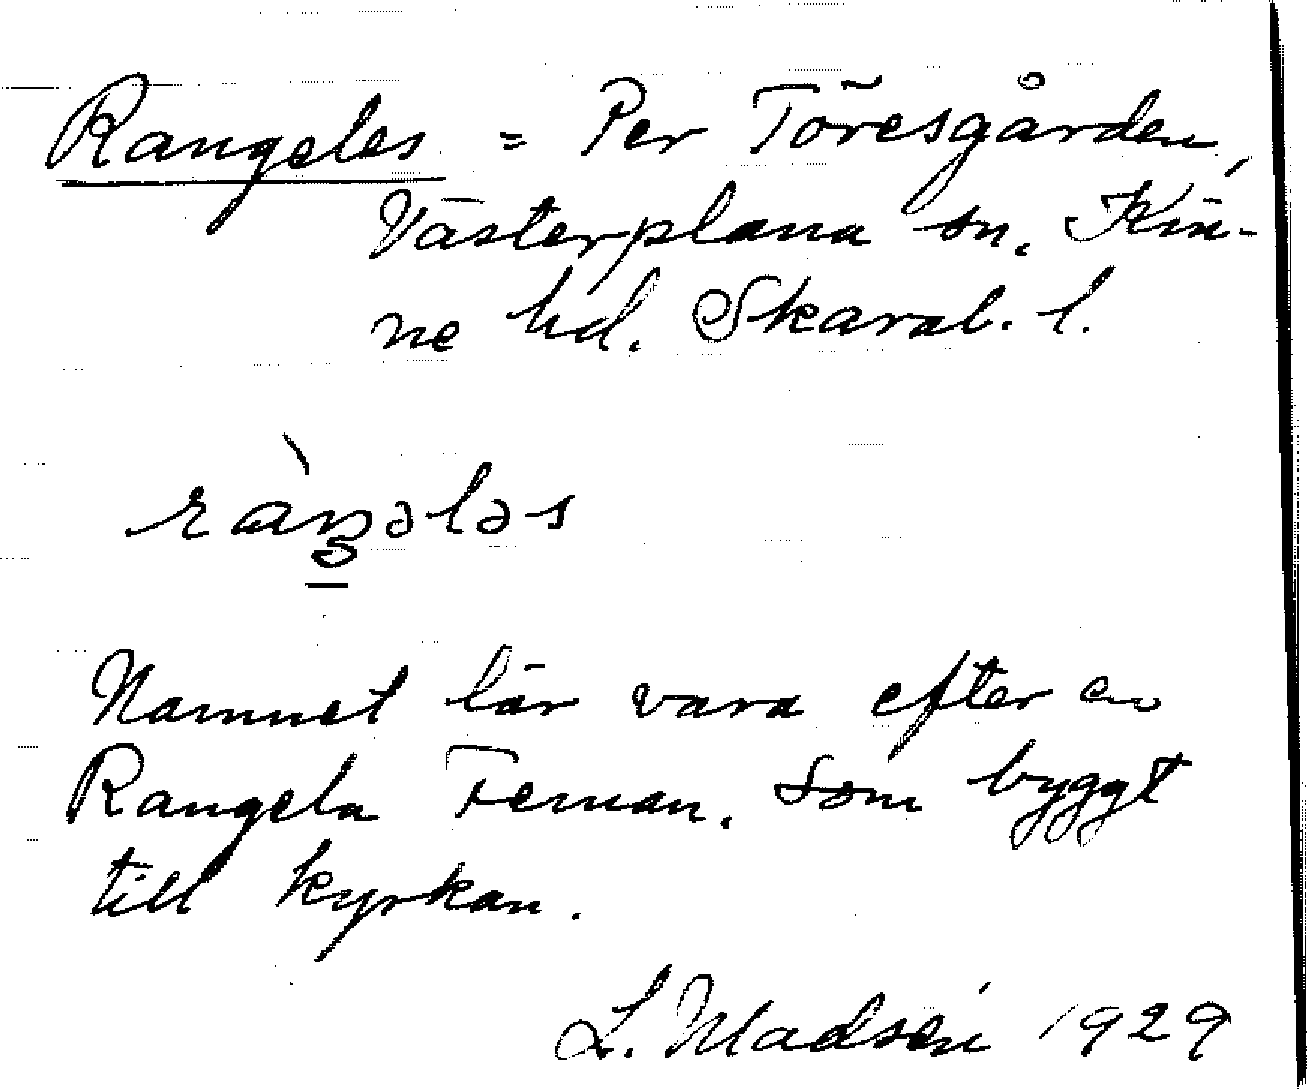 Rangeles = Per Töresgården,
Västerplana sn. Kin-
ne hd. Skarab. l.
ràŋələs
Namnet lär vara efter en
Rangela Teman. som byggt
till kyrkan.
L. Madsén 1929